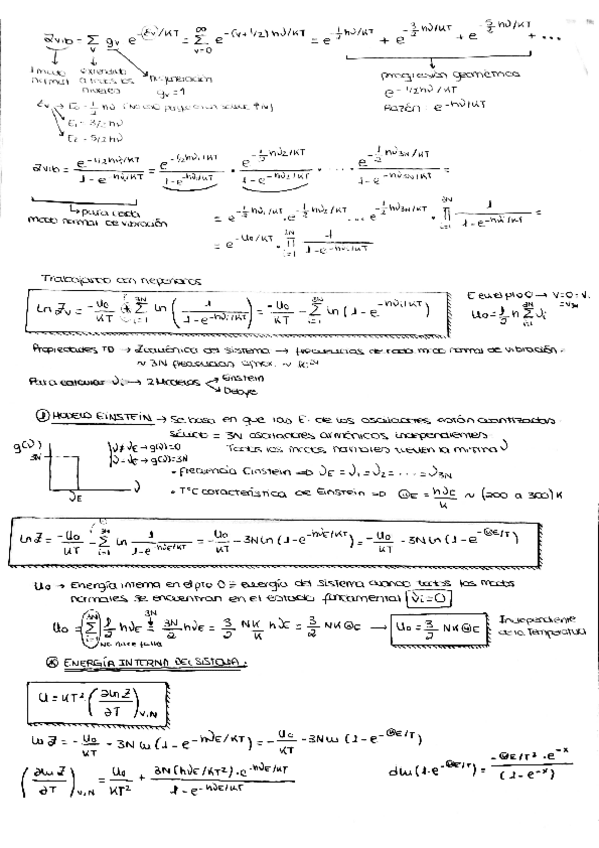 Zvib = Σ_v g_v e^(-Ev/KT) = Σ_{v=0}^{∞} e^(-(v+1/2)hν/KT) = e^(-1/2 hν/KT) + e^(-3/2 hν/KT) + e^(-5/2 hν/KT) + ...
1 modo normal
extendido a todos los niveles
degeneración g_v = 1
progresión geométrica
e^(-1/2hν/KT)
Razón: e^(-hν/KT)
Ev → E0 = 1/2 hν
E1 = 3/2 hν
E2 = 5/2 hν
Zvib = e^(-1/2hν/KT) / (1 - e^(-hν/KT)) = e^(-1/2hν1/KT) / (1 - e^(-hν1/KT)) · e^(-1/2 hν2/KT) / (1 - e^(-hν2/KT)) · ... · e^(-1/2 hν3N/KT) / (1 - e^(-hν3N/KT)) =
→ para cada modo normal de vibración
= e^(-1/2 hν1/KT) · e^(-1/2 hν2/KT) ... e^(-1/2 hν3N/KT) · Π_{i=1}^{3N} 1 / (1 - e^(-hνi/KT)) =
= e^(-U0/KT) · Π_{i=1}^{3N} 1 / (1 - e^(-hνi/KT))
Trabajando con neperianos
ln Zv = -U0/KT + Σ_{i=1}^{3N} ln (1 / (1 - e^(-hνi/KT))) = -U0/KT - Σ_{i=1}^{3N} ln (1 - e^(-hνi/KT))
U0 = 1/2 h Σ_{i=1}^{3N} νi
Propiedades TD → Z canónica del sistema → frecuencias de cada modo normal de vibración
~ 3N frecuencias aprox.
Para calcular νi → 2 Modelos
Einstein
Debye
① MODELO EINSTEIN → Se basa en que las E. de los osciladores están cuantizadas
Sólido = 3N osciladores armónicos independientes
Todos los modos normales tienen la misma ν
g(ν)
3N
νE
ν
ν ≠ νE → g(ν) = 0
ν = νE → g(ν) = 3N
• frecuencia Einstein ⇒ νE = ν1 = ν2 = ... = ν3N
• TªC característica de Einstein ⇒ ΘE = hνE/K ~ (200 a 300) K
ln Z = -U0/KT - Σ_{i=1}^{3N} ln 1 / (1 - e^(-hνE/KT)) = -U0/KT - 3N ln (1 - e^(-hνE/KT)) = -U0/KT - 3N ln (1 - e^(-ΘE/T))
U0 → Energía interna en el pto 0 = energía del sistema cuando todos los modos
normales se encuentran en el estado fundamental νi = 0
U0 = Σ_{i=1}^{3N} 1/2 hνE = 3N/2 hνE = 3/2 NK/K hνE = 3/2 NKΘE → U0 = 3/2 NKΘE
No hace falta
Independiente de la Temperatura
ENERGÍA INTERNA DEL SISTEMA:
U = KT² (∂lnZ/∂T)_{V,N}
ln Z = -U0/KT - 3N ln (1 - e^(-hνE/KT)) = -U0/KT - 3N ln (1 - e^(-ΘE/T))
(∂ln Z/∂T)_{V,N} = U0/KT² + 3N(hνE/KT²) · e^(-hνE/KT) / (1 - e^(-hνE/KT))
dln(1-e^(-ΘE/T)) = -ΘE/T² · e^(-x) / (1 - e^(-x))